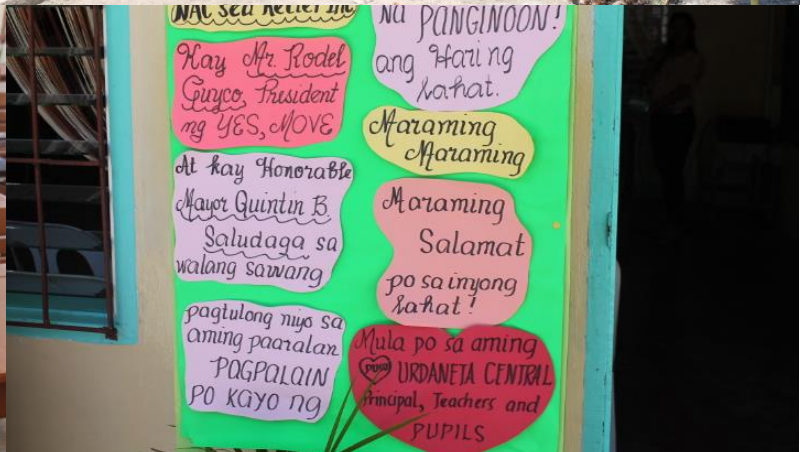 Kay Mr. Rodel
Guyco, President
ng YES, MOVE
At kay Honorable
Mayor Quintin B.
Saludaga sa
walang sawang
pagtulong niyo sa
aming paaralan
PAGPALAIN
PO KAYO NG
NA PANGINOON!
ang Hari ng
Lahat.
Maraming
Maraming
Maraming
Salamat
po sa inyong
Lahat!
Mula po sa aming
puso URDANETA CENTRAL
Principal, Teachers and
PUPILS